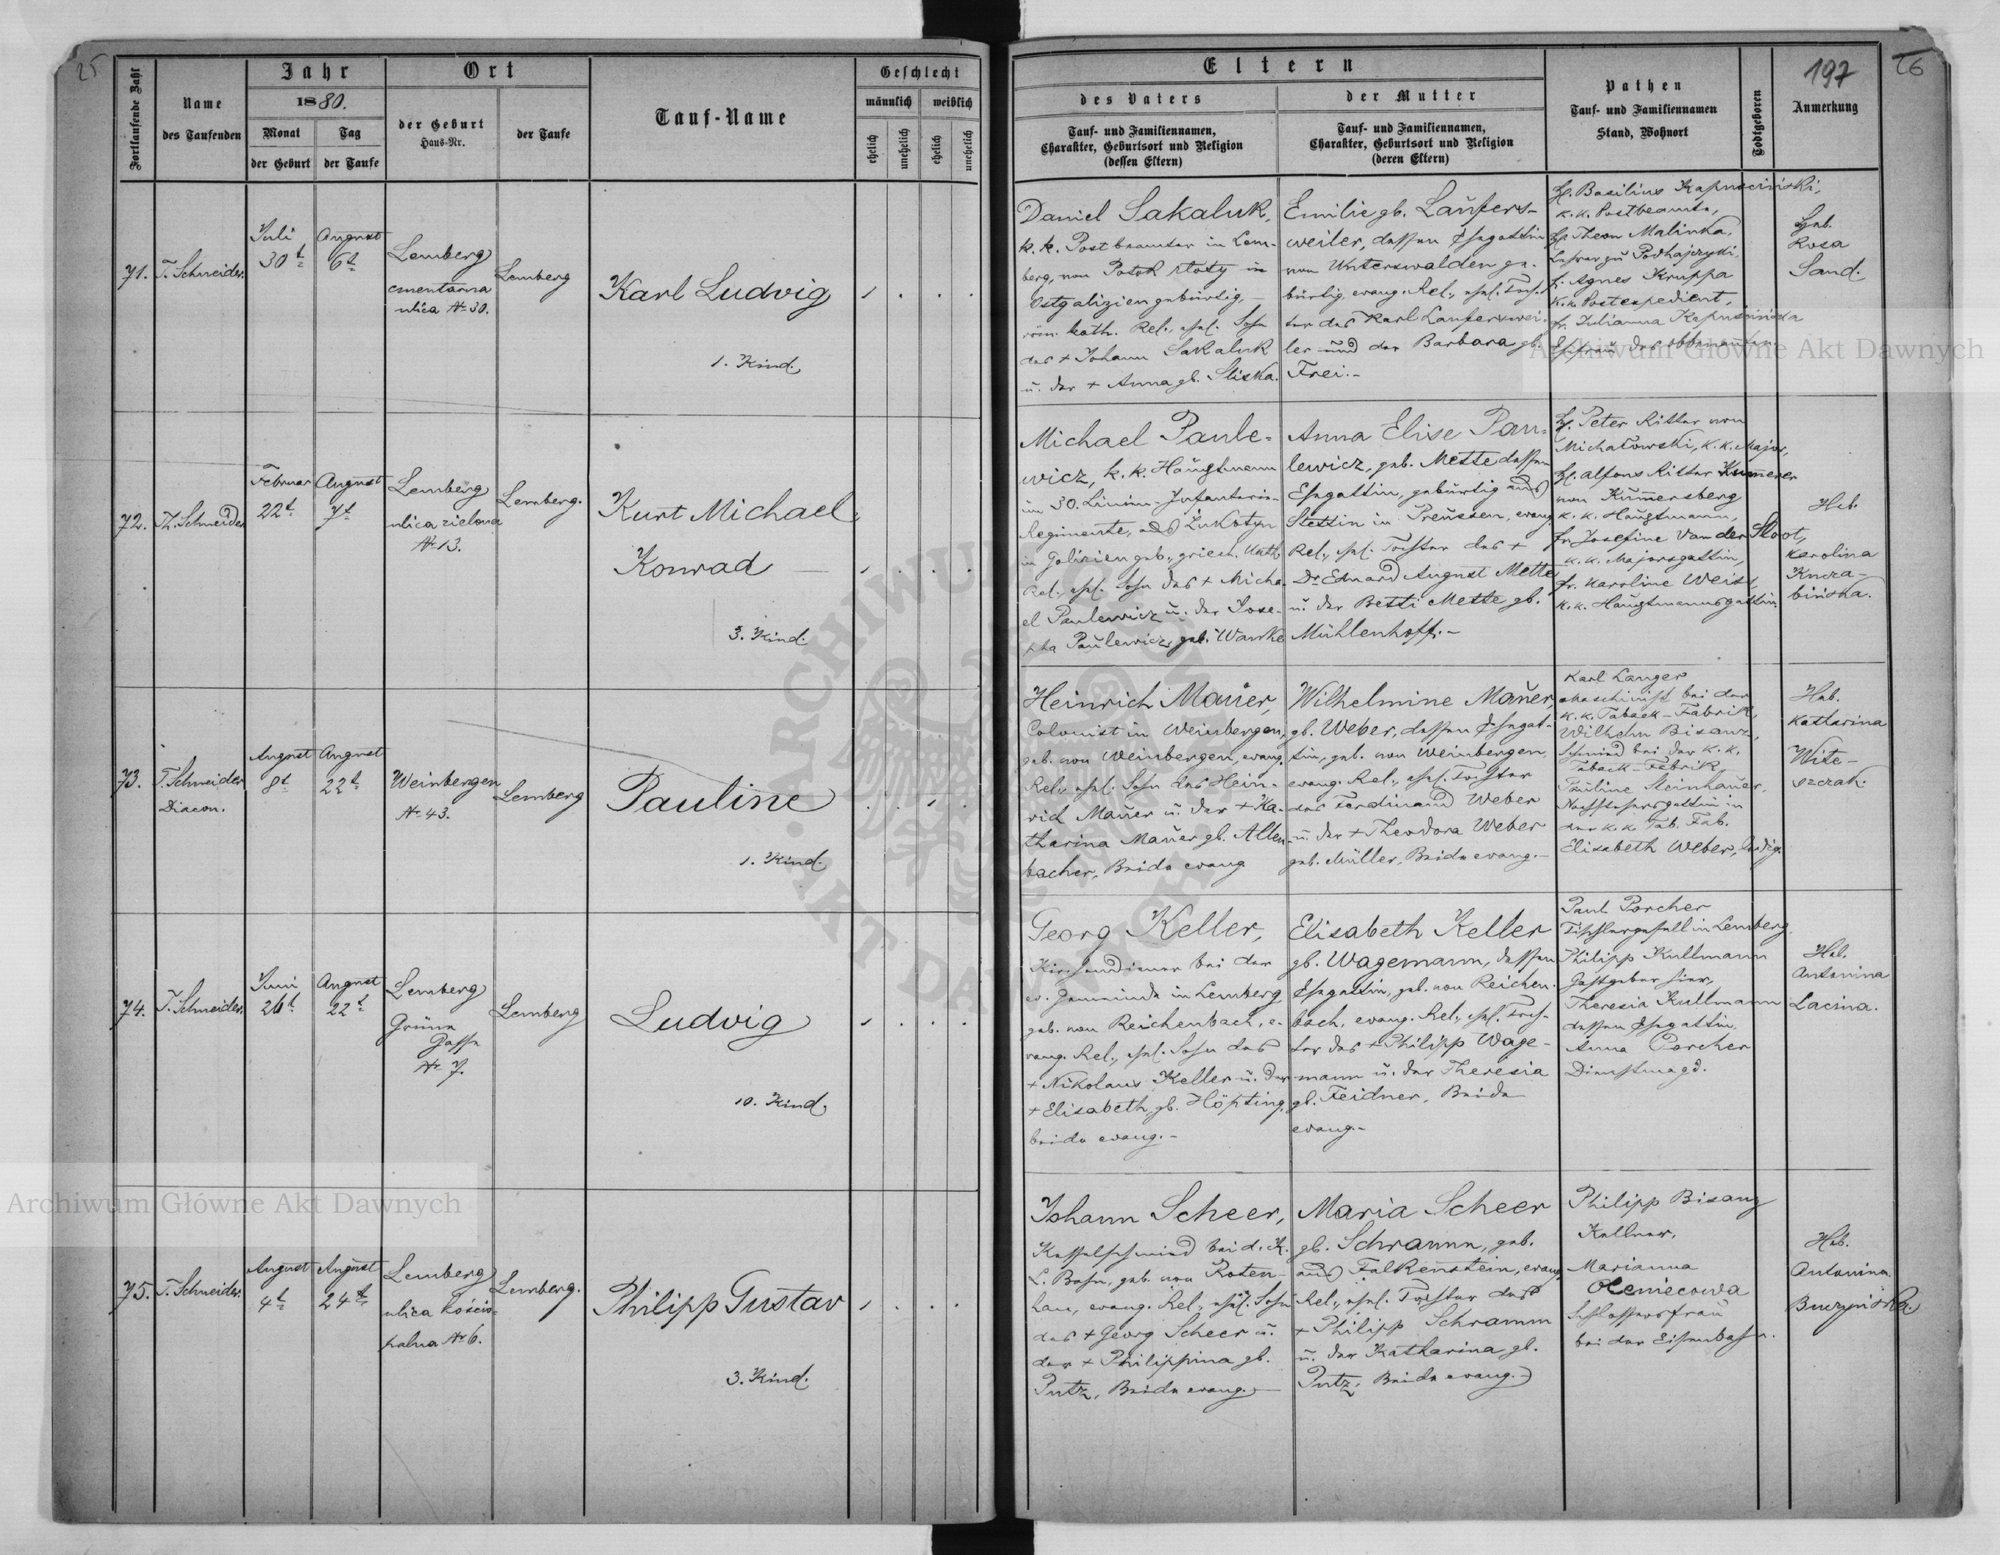 25
Fortlaufende Zahl
Name
des Taufenden
Jahr
1880.
Monat
der Geburt
Tag
der Taufe
Ort
der Geburt
Haus-Nr.
der Taufe
Tauf-Name
Geschlecht
männlich
weiblich
ehelich
unehelich
ehelich
unehelich
Eltern
des Vaters
Tauf- und Familiennamen,
Charakter, Geburtsort und Religion
(dessen Eltern)
der Mutter
Tauf- und Familiennamen,
Charakter, Geburtsort und Religion
(deren Eltern)
Pathen
Tauf- und Familiennamen
Stand, Wohnort
Todtgeboren
197
26
Anmerkung
71.
T. Schneider.
Juli
30t
August
6t
Lemberg
cmentarna
ulica Nr 30.
Lemberg
Karl Ludvig
1. Kind.
Daniel Sakaluk,
k. k. Postbeamter in Lem-
berg, von Potok złoty in
Ostgalizien gebürtig, –
röm. kath. Rel., ehel. Sohn
des + Johann Sakaluk
u. der + Anna gb. Sliska.
Emilie gb. Laufers-
weiler, dessen Ehegattin
von Unterwalden ge-
bürtig, evang. Rel., ehel. Toch-
ter des Karl Lauferswei-
ler und der Barbara gb.
Frei. –
H. Basilius Kapuscinski,
k. k. Postbeamte,
H. Theon Malinka,
Lehrer zu Podhajczyki,
Fr. Agnes Kruppa
k. k. Postexpedient,
Fr. Julianna Kapuscinska
Ehefrau des Obbenannten
Heb.
Rosa
Sand.
72.
T. Schneider
Februar
22t
August
7t
Lemberg
ulica zielona
Nr 13.
Lemberg.
Kurt Michael
Konrad –
3. Kind.
Michael Paule-
wicz, k. k. Hauptmann
im 30. Linien-Infanterie-
Regimente, aus Zukotyn
in Galizien geb., griech. kath.
Rel., ehel. Sohn des + Micha-
el Paulewicz u. der Jose-
pha Paulewicz, geb. Wanke
Anna Elise Pau-
lewicz, geb. Mette dessen
Ehegattin, gebürtig aus
Stettin in Preussen, evang.
Rel., ehel. Tochter des +
Dr Eduard August Mette
u. der Betti Mette gb.
Mühlenhoff. –
H. Peter Ritter von
Michałowski, k. k. Major,
H. Alfons Ritter Kummerer
von Kummersberg
k. k. Hauptmann,
Fr. Josefine Van der Sloot,
k. k. Majorsgattin,
Fr. Karoline Weiss,
k. k. Hauptmannsgattin.
Heb.
Karolina
73.
T. Schneider
Diacon.
August
8t
August
22t
Weinbergen
Nr 43.
Lemberg
Pauline
1. Kind.
Heinrich Mauer,
Colonist in Weinbergen,
geb. von Weinbergen, evang.
Rel., ehel. Sohn des Hein-
rich Mauer u. der + Ka-
tharina Mauer gb. Allen-
bacher, Beide evang.
Wilhelmine Mauer,
gb. Weber, dessen Ehegat-
tin, geb. von Weinbergen,
evang. Rel., ehel. Tochter
des Ferdinand Weber
u. der + Theodora Weber
geb. Müller, Beide evang. –
Karl Langer
Maschinist bei der
k. k. Taback-Fabrik,
Wilhelm Bisanz,
Schmied bei der k. k.
Taback-Fabrik,
Pauline Steinhauer,
in
der k. k. Tab. Fab.
Elisabeth Weber, ledig.
Heb.
Katharina
Wite-
szczak.
74.
T. Schneider.
Juni
26t
August
22t
Lemberg
Grüne
Gasse
Nr 7.
Lemberg
Ludvig
10. Kind.
Georg Keller,
Kirchendiener bei der
ev. Gemeinde in Lemberg
geb. von Reichenbach, e-
vang. Rel., ehel. Sohn des
+ Nikolaus Keller u. der
+ Elisabeth, gb. Höpting,
beide evang. –
Elisabeth Keller
gb. Wagemann, dessen
Ehegattin, geb. von Reichen-
bach, evang. Rel., ehel. Toch-
ter des + Philipp Wage-
mann u. der Theresia
gb. Feidner, Beide
evang. –
Paul Porcher
Tischlergesell in Lemberg
Philipp Kullmann
Gastgeber hier,
Theresia Kullmann
dessen Ehegattin,
Anna Porcher
Dienstmagd.
Heb.
Antonina
Lacina.
75.
T. Schneider.
August
4t
August
24t
Lemberg
ulica kościo-
palna Nr 6.
Lemberg.
Philipp Gustav
3. Kind.
Johann Scheer,
Kesselschmied bei d. K.
L. Bahn, geb. von Roten-
han, evang. Rel., ehel. Sohn
des + Georg Scheer u.
der + Philippina gb.
Putz, Beide evang. –
Maria Scheer
gb. Schramm, geb.
aus Falkenstein, evang.
Rel., ehel. Tochter des
+ Philipp Schramm
u. der Katharina, gb.
Putz, Beide evang. –
Philipp Bisanz
Kellner,
Marianna
Oleniecowa
Schlossersfrau
bei der Eisenbahn.
Heb.
Antonina
Archiwum Główne Akt Dawnych
Archiwum Główne Akt Dawnych
ARCHIWUM GŁÓWNE AKT DAWNYCH